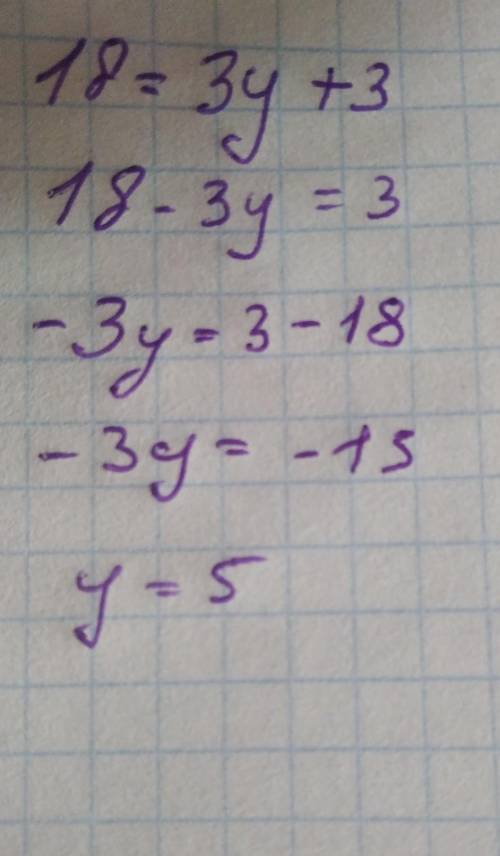 18 = 3y + 3
18 - 3y = 3
- 3y = 3 - 18
- 3y = - 15
y = 5